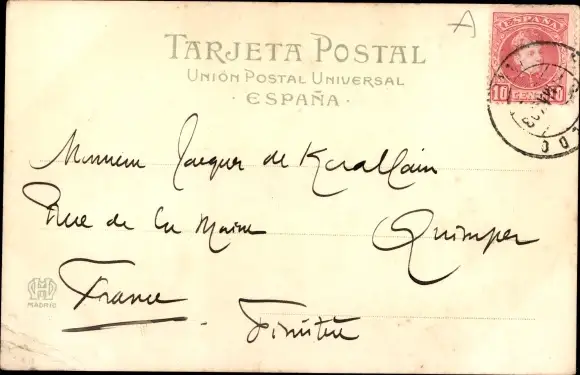 A
TARJETA POSTAL
UNIÓN POSTAL UNIVERSAL
· ESPAÑA ·
ESPAÑA
10 CENT. 10
Monsieur Jacques de Kerallain
Rue de la Mairie
Quimper
France
Finistère
MADRID